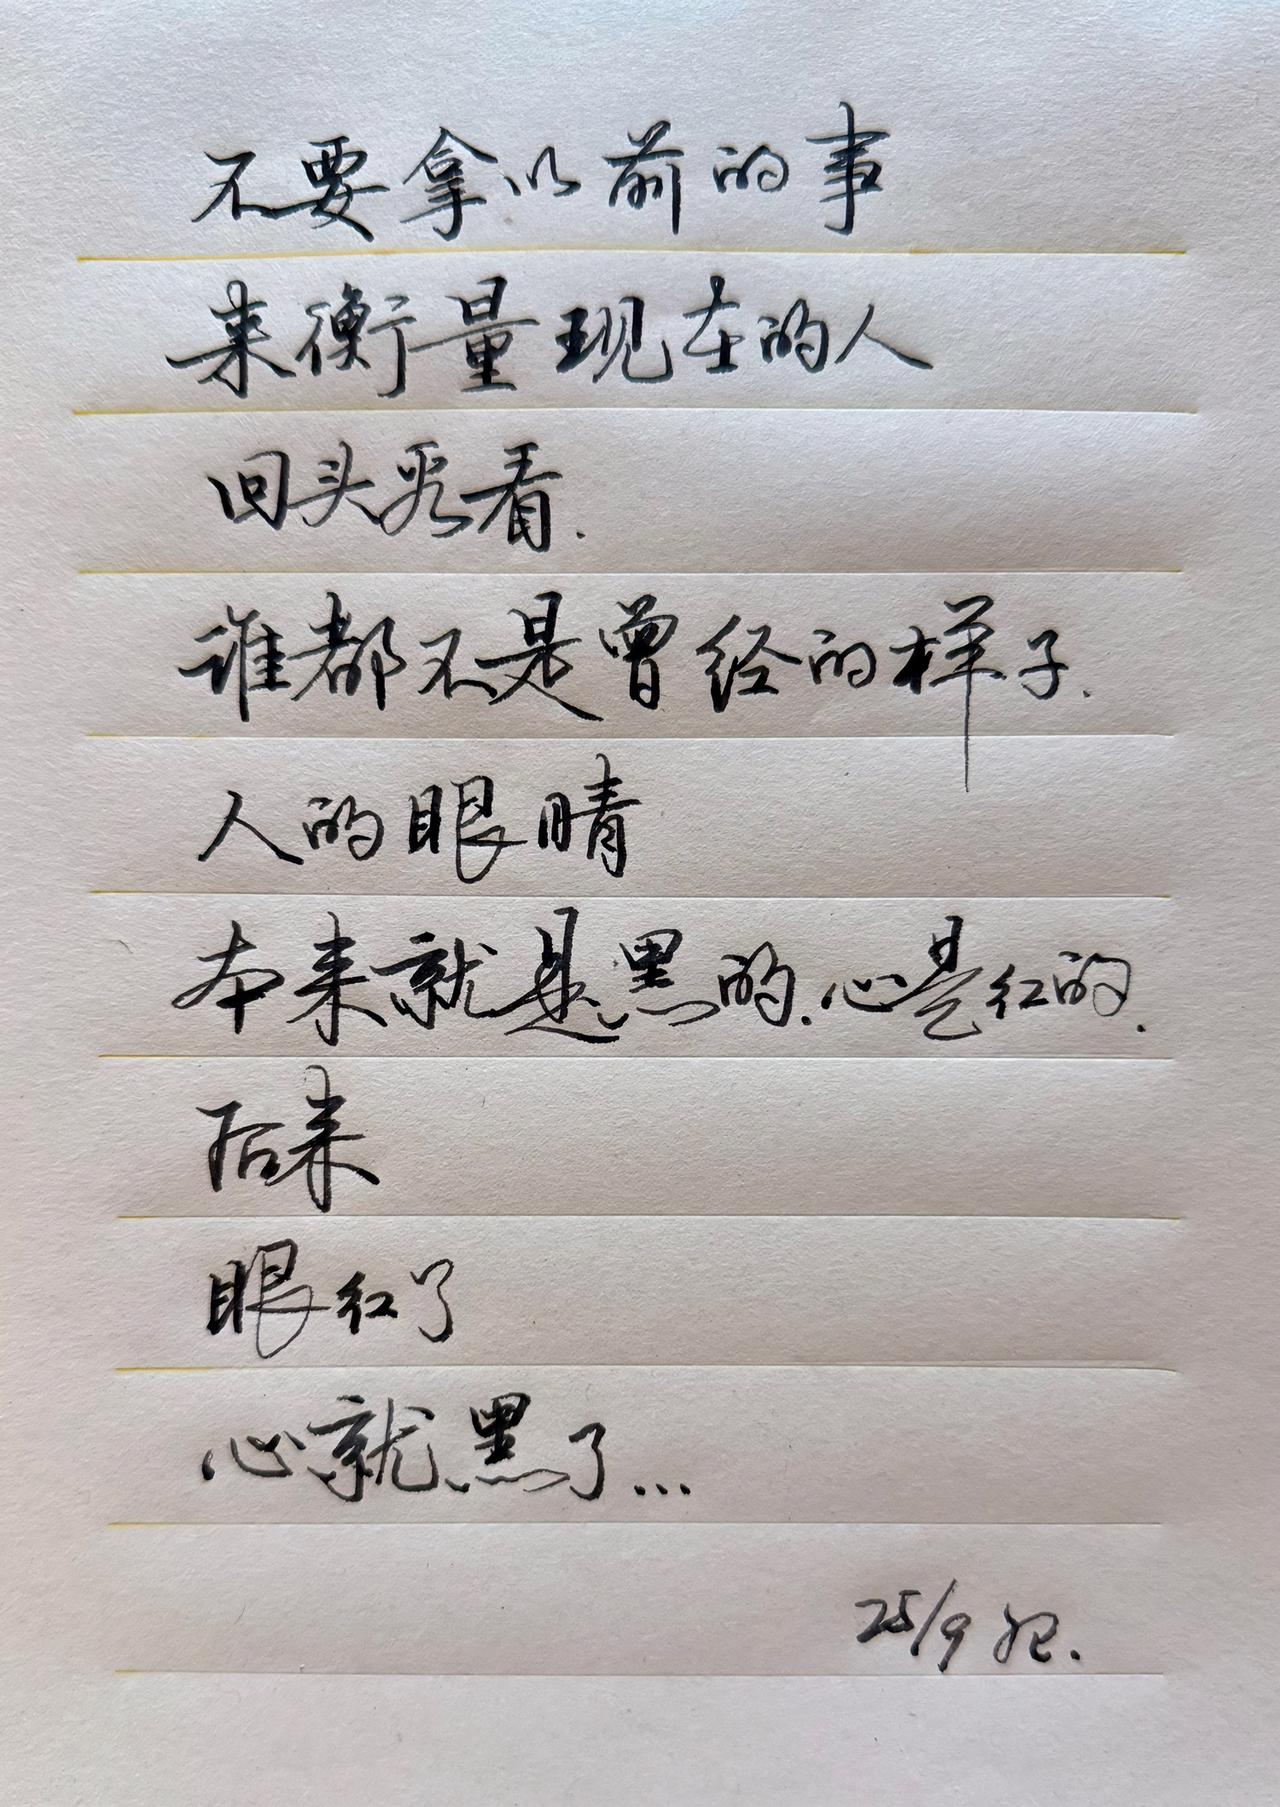 不要拿以前的事
来衡量现在的人
回头再看.
谁都不是曾经的样子.
人的眼睛
本来就是黑的.心是红的.
后来
眼红了
心就黑了...
25/9